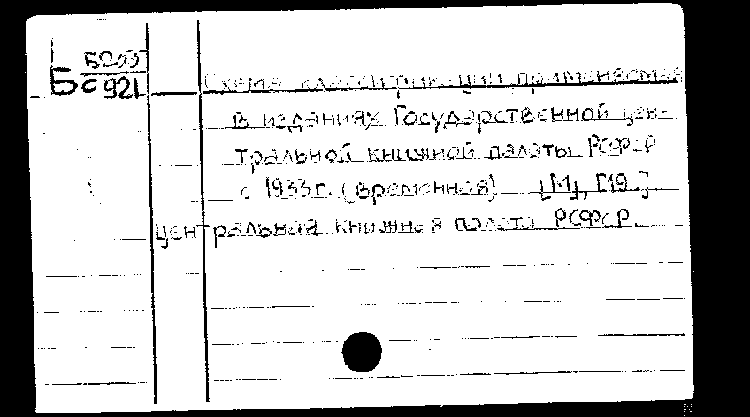 Б Б055
С 921
Схема классификации, применяемая
в изданиях Государственной цен-
тральной книжной палаты РСФСР
с 1933 г. (временная) [М], [19.]
Центральная книжная палата РСФСР.